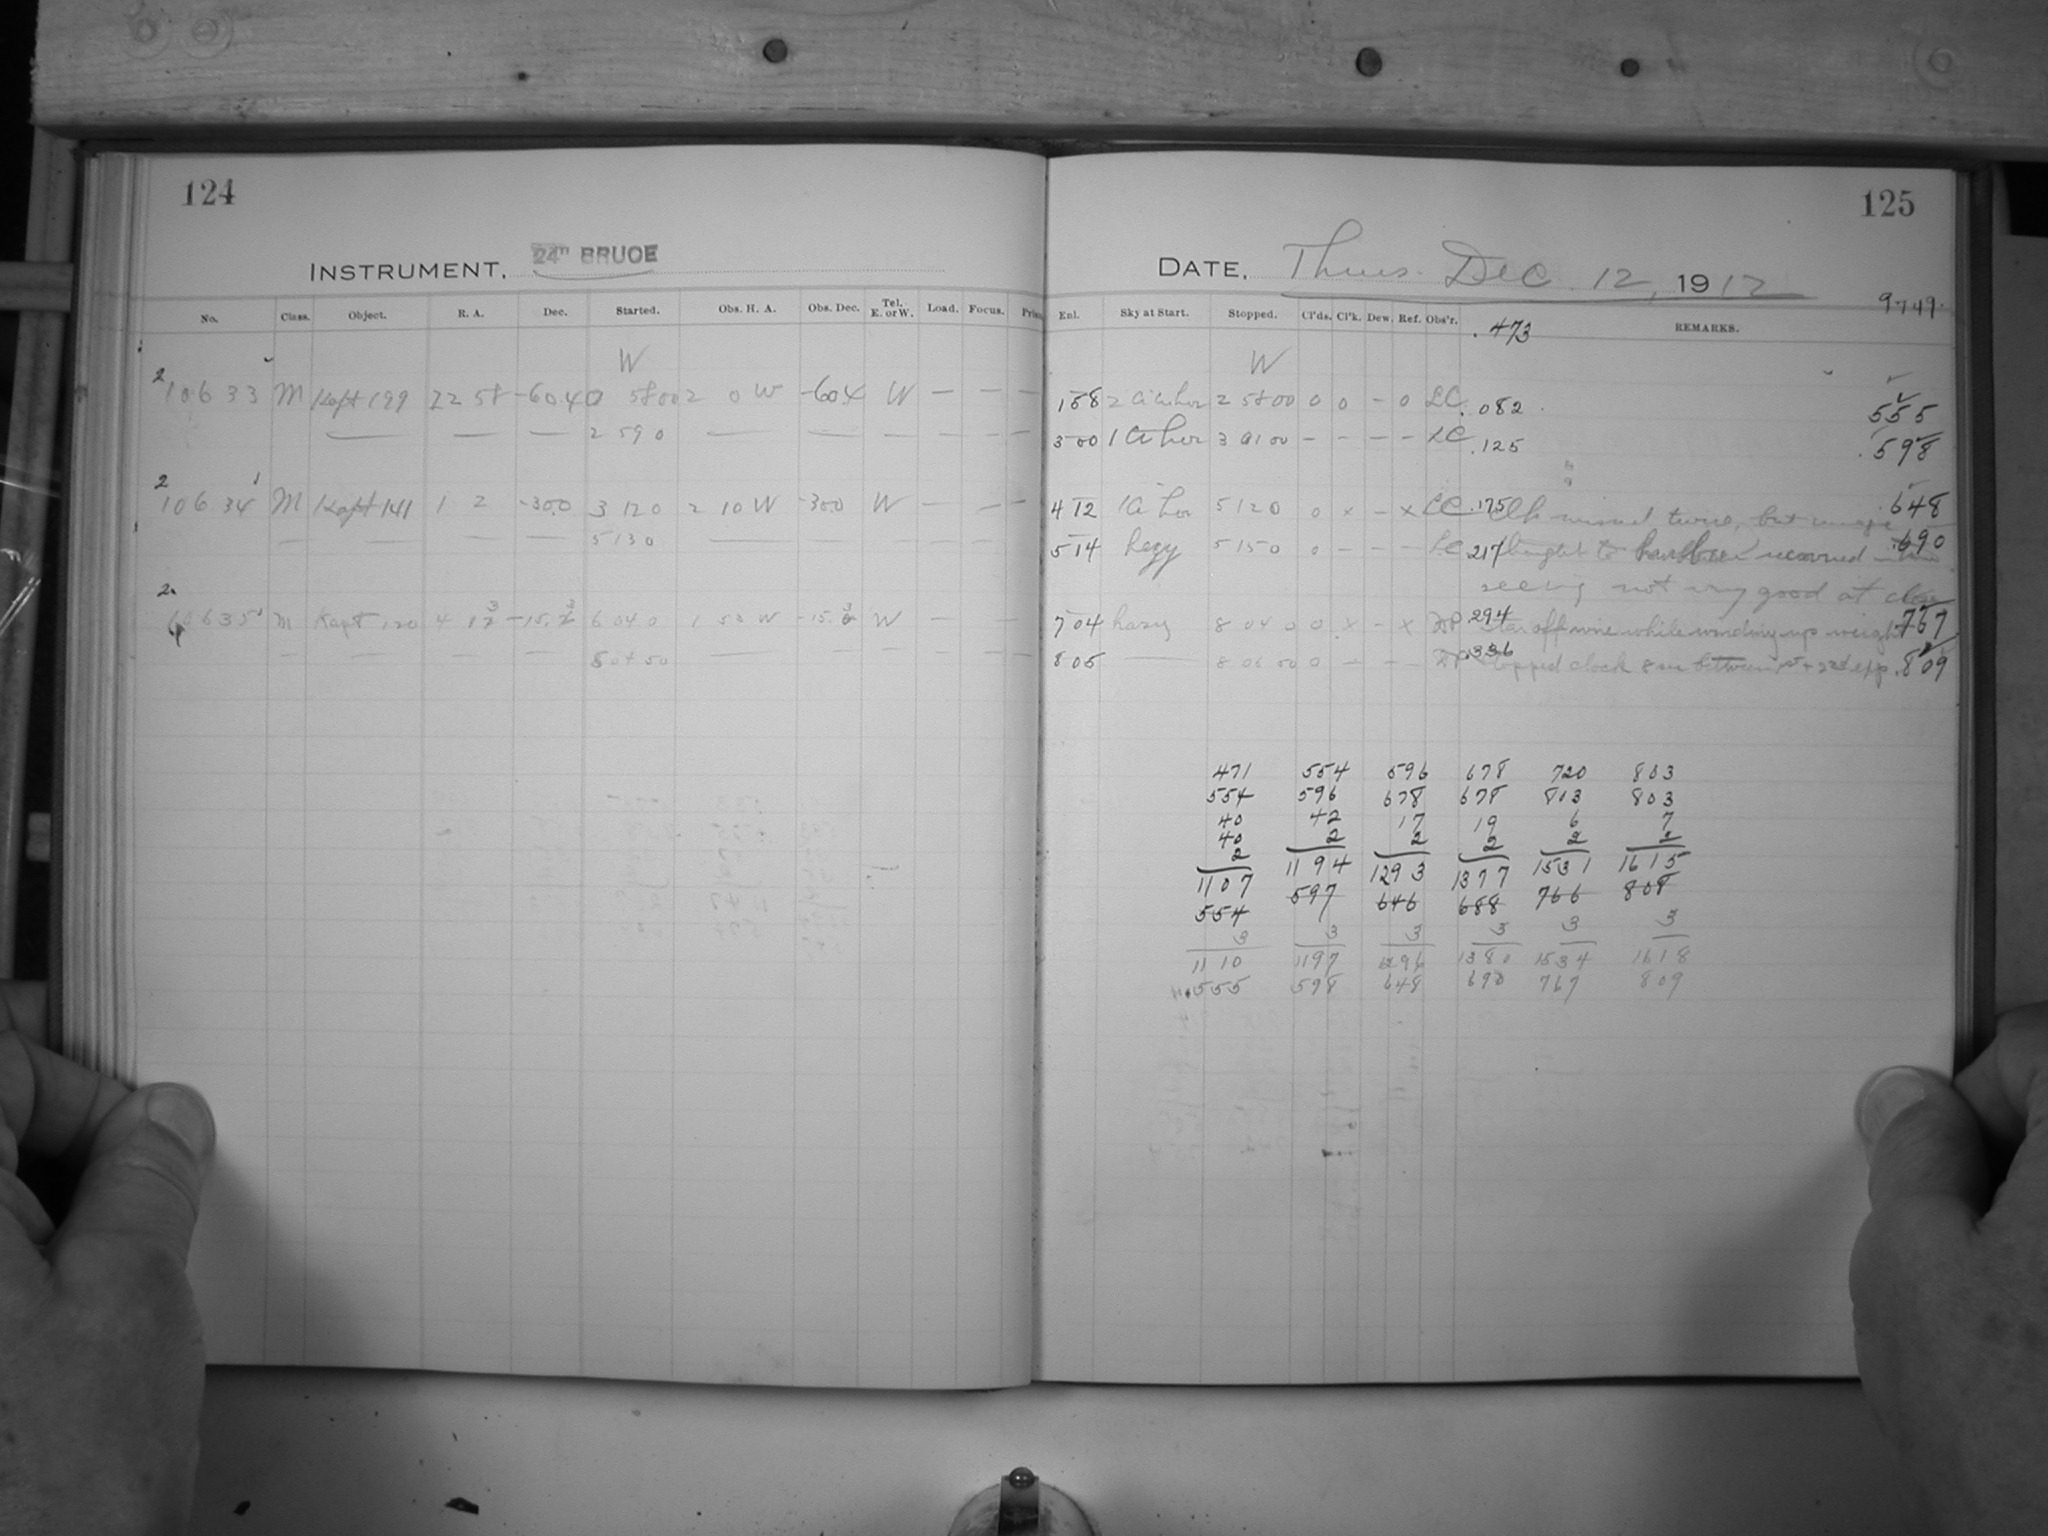 124
INSTRUMENT. 24" BRUCE
No. Class. Object. R. A. Dec. Started. Obs. H. A. Obs. Dec. Tel. E. or W. Load. Focus.
W
2 10633 M Kapt 199 22 58 -60.4 0 58 00 2 0 W -60.4 W — —
— — — 2 59 0 — — — — —
2 10634 M Kapt 141 1 2 -30.0 3 12 0 2 10 W -30.0 W — —
— — — — 5 13 0 — — — — —
2 10635 M Kapt 120 6 04 0 1 53 W W — —
— — — — 8 04 50 — — — — —
125
DATE, Thurs. Dec. 12, 1912
9749.
Enl. Sky at Start. Stopped. Cl'ds. Cl'k. Dew. Ref. Obs'r. REMARKS.
.473
W
158 2 58 00 0 0 - 0 LC .082 555
300 3 01 00 - - - - LC .125 .598
412 5 12 0 0 x - x LC .175 Clk missed twice, but image .648
514 hazy 5 15 0 0 - - - LC .217 brought to recovered .690
seeing not very good at close
704 hazy 8 04 0 0 x - x .294 Star off wire while winding up weight 767
805 — 8 06 50 0 - - - .336 Stopped clock 8 between 1st + 2nd exp .809
471 554 596 678 720 803
554 596 678 678 803 803
40 42 17 19 6 7
40 2 2 2 2 2
2 1194 1293 1377 1531 1615
1107 597 646 688 766 808
554
3 3 3 3 3 3
1110 1197 1296 1380 1534 1618
.555 598 648 690 767 809